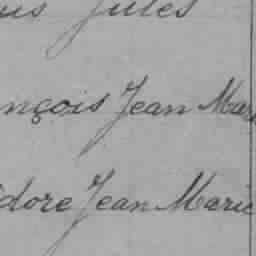 us Jules
nçois Jean Mari
dore Jean Marie